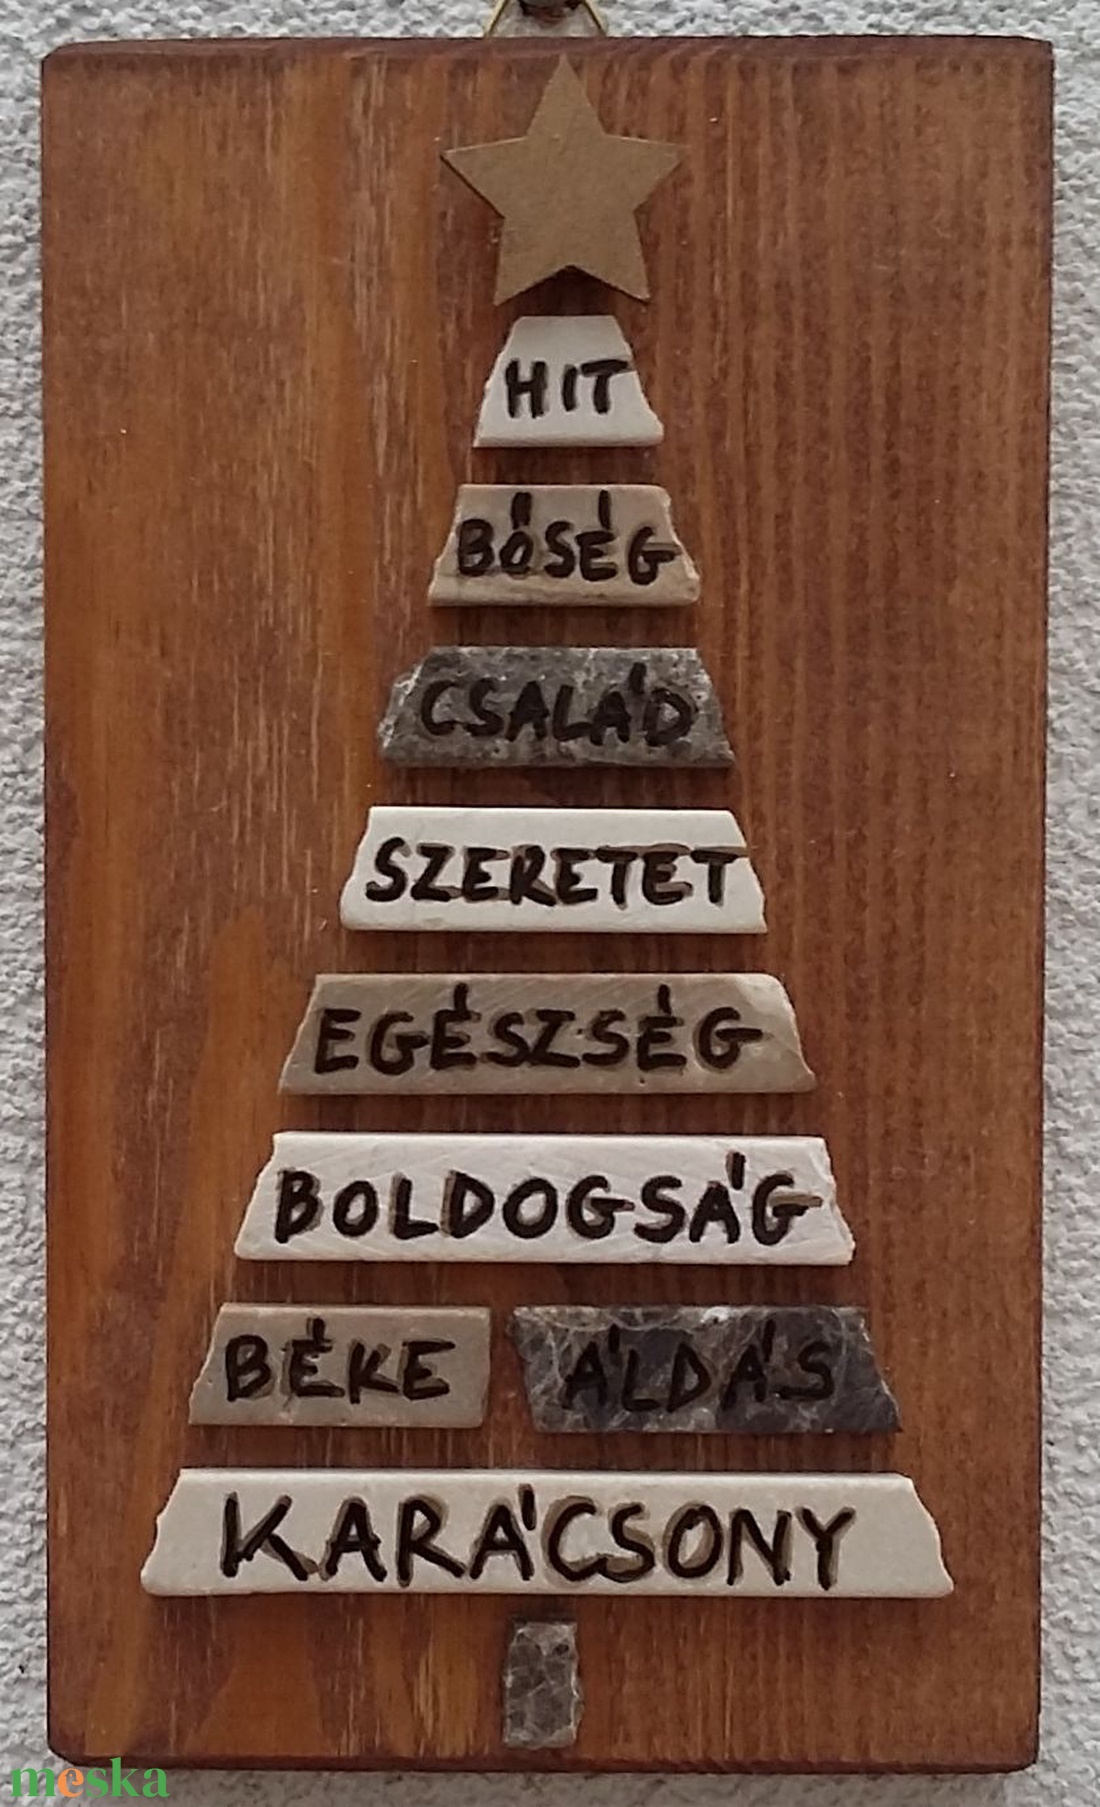 HIT
BŐSÉG
CSALÁD
SZERETET
EGÉSZSÉG
BOLDOGSÁG
BÉKE ÁLDÁS
KARÁCSONY
meska